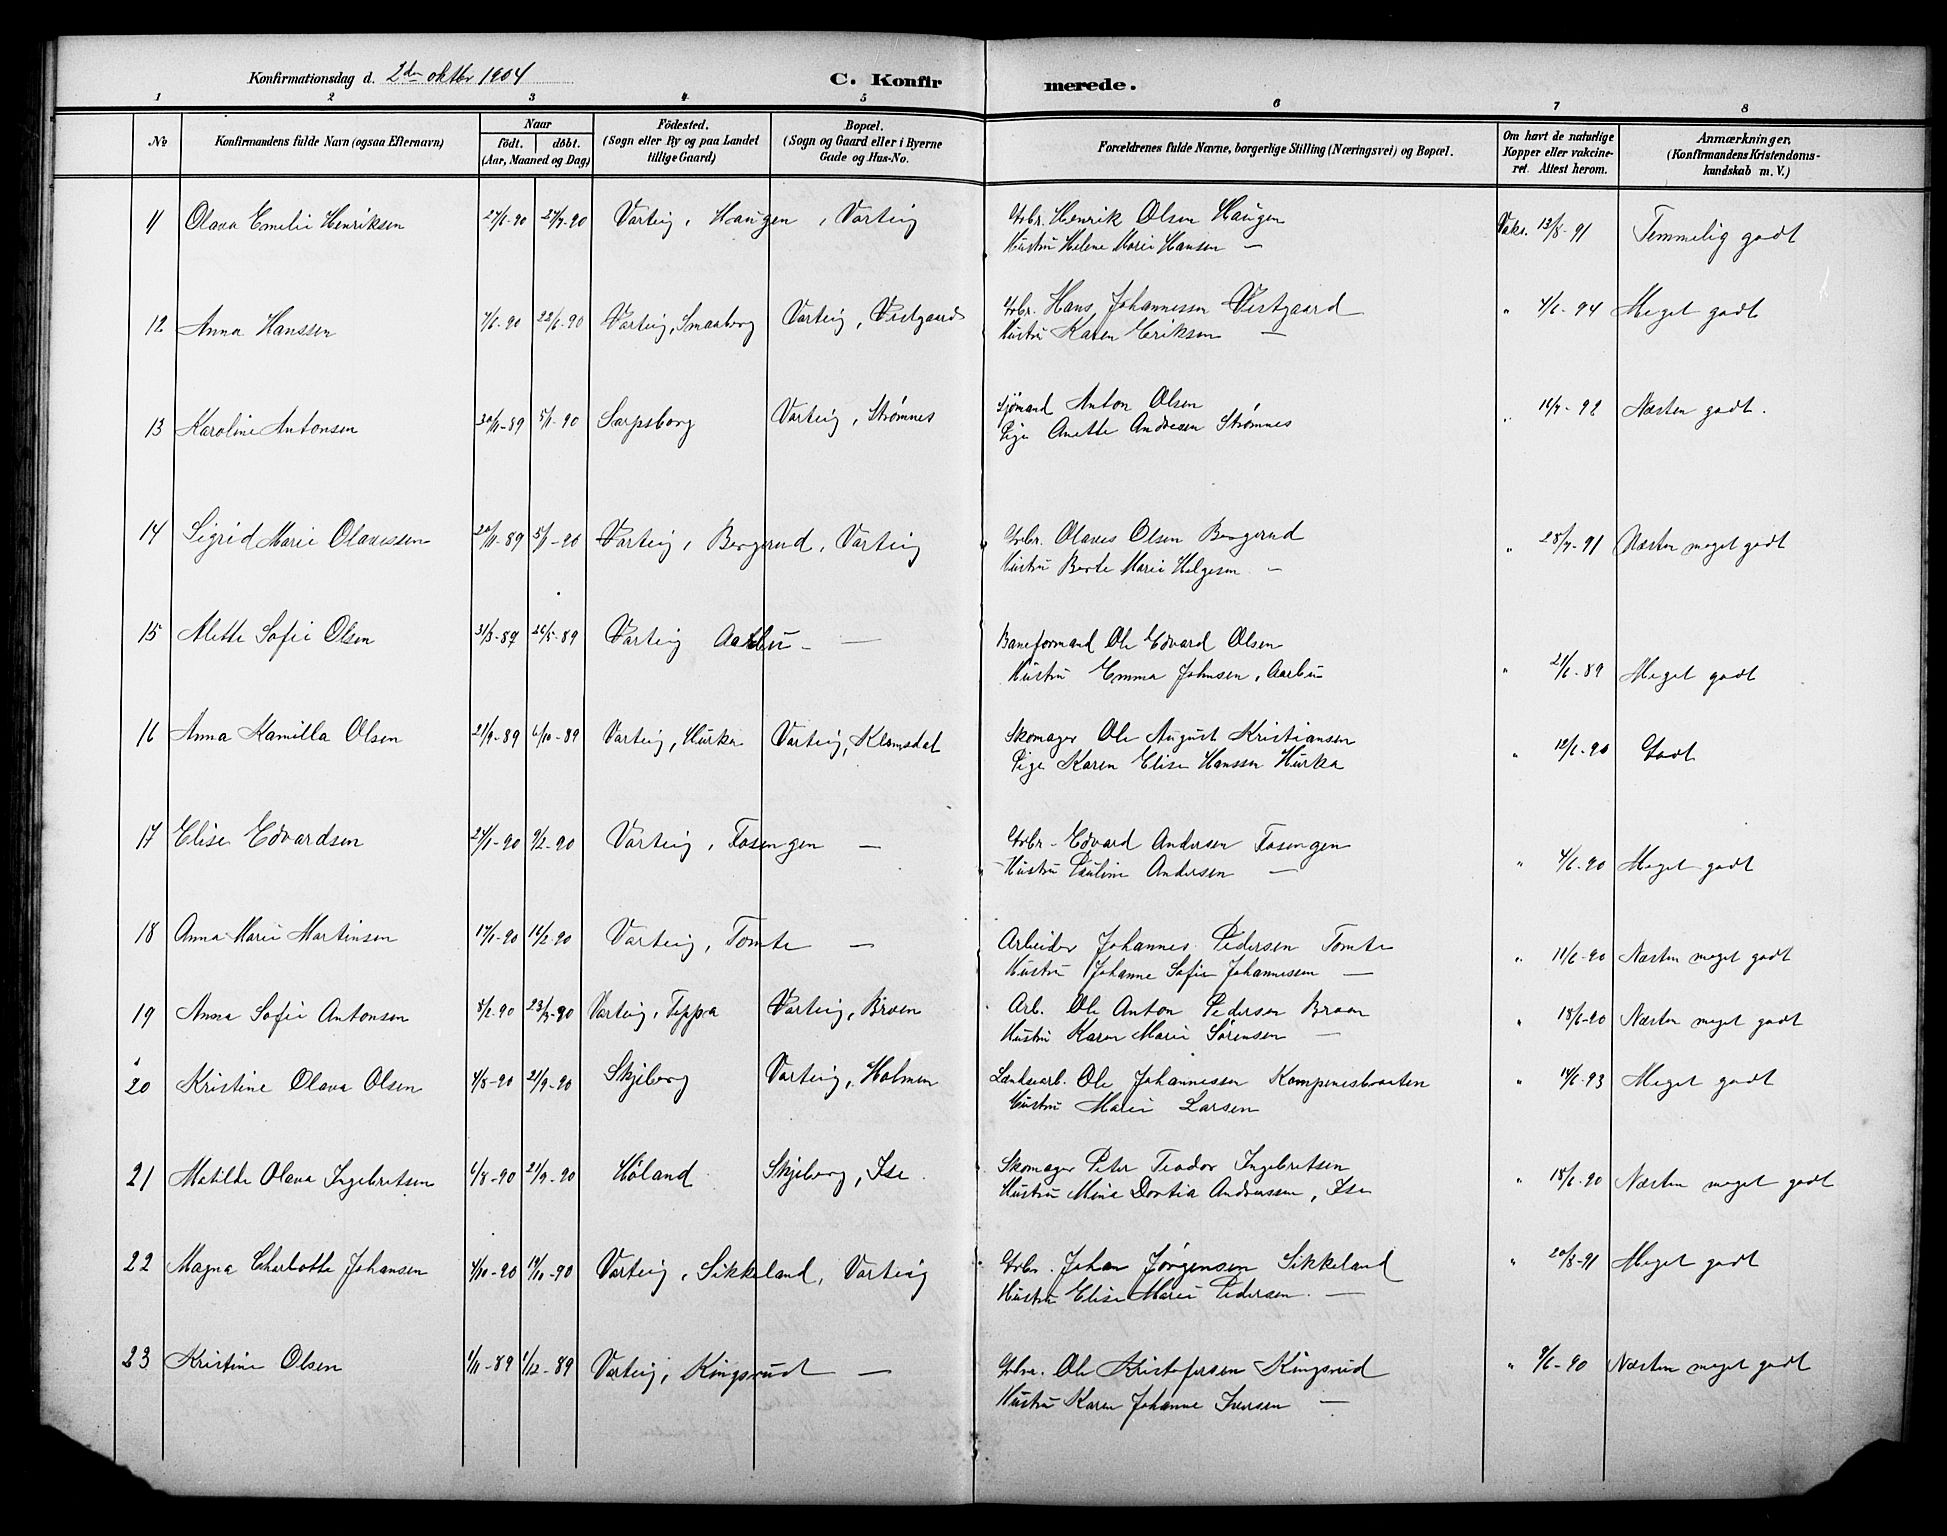 Konfirmationsdag d. 2den oktbr 1904 C. Konfir merede.
1 2 3 4 5 6 7 8
No Konfirmandens fulde Navn (ogsaa Efternavn) Naar Födested. Bopæl. Forældrenes fulde Navne, borgerlige Stilling (Næringsvei) og Bopæl. Om havt de naturlige Anmærkninger.
födt. döbt. (Sogn eller By og paa Landet (Sogn og Gaard eller i Byerne Kopper eller vakcine- (Konfirmandens Kristendoms-
(Aar, Maaned og Dag) tillige Gaard) Gade og Hus-No. ret. Attest herom. kundskab m. V.)
11 Olava Emelie Henriksen 27/6-90 27/7-90 Varteig, Haugen, Varteig Gbr. Henrik Olsen Haugen Vaks. 13/8-91 Temmelig godt
Hustru Helene Marie Hansen —
12 Anna Hanssen 22/6-90 Varteig, Smaaborg Varteig, Vestgaard Gbr. Hans Johannessen Vestgaard " 4/6-94 Meget godt
Hustru Karen Eriksen —
13 Karoline Antonsen 30/11-89 5/1-90 Sarpsborg Varteig, Strømnes Sjømand Anton Olsen " 92 Næsten godt.
Pige Anette Andresen Strømnes
14 Sigrid Marie Olavessen 20/11-89 5/1-90 Varteig, Bergerud, Varteig Gbr. Olaves Olsen Bergerud " 28/7-91 Næsten meget godt
Hustru Berte Marie Helgesen —
15 Alette Sofie Olsen 31/3-89 26/5-89 Varteig Aarbu — Baneformand Ole Edvard Olsen
Hustru Emma Johnsen, Aarbu " 21/6-89 Meget godt
16 Anna Kamilla Olsen 21/9-89 6/10-89 Varteig, Hurka Varteig, Klomsdal Skomager Ole August Kristiansen " 12/6-90 Godt
Pige Karen Elise Hanssen Hurka
17 Elise Edvardsen 27/1-90 9/2-90 Varteig, Fosengen — Gbr. Edvard Andersen Fosengen " 4/6-90 Meget godt
Hustru Pauline Andersen —
18 Anna Marie Martinsen 17/1-90 16/2-90 Varteig, Tomte — Arbeider Johannes Pedersen Tomte " 11/6-90 Næsten meget godt
Hustru Johanne Sofie Johannessen —
19 Anna Sofie Antonsen 8/2-90 23/3-90 Varteig, Teppa Varteig, Broen Arb. Ole Anton Pedersen Braan " 18/6-90 Næsten meget godt
Hustru Karen Marie Sørensen —
20 Kristine Olava Olsen 4/8-90 21/9-90 Skjeberg Varteig, Holmen Landarb. Ole Johannessen Kampenesbraaten " 14/6-93 Meget godt
Hustru Marie Larsen
21 Matilde Olava Ingebretsen 6/8-90 21/9-90 Høland Skjeberg, Ise. Skomager Peter Teodor Ingebretsen " 18/6-90 Næsten meget godt
Hustru Mina Dortia Andreassen, Ise
22 Magna Charlotte Johansen 4/10-90 19/10-90 Varteig, Sikkeland, Varteig Gbr. Johan Jørgensen Sikkeland " 20/8-91 Meget godt
Hustru Elise Marie Pedersen —
23 Kristine Olsen 1/11-89 1/12-89 Varteig, Kingsrud — Gbr. Ole Kristofersen Kingsrud " 9/6-90 Næsten meget godt
Hustru Karen Johanne Iversen —